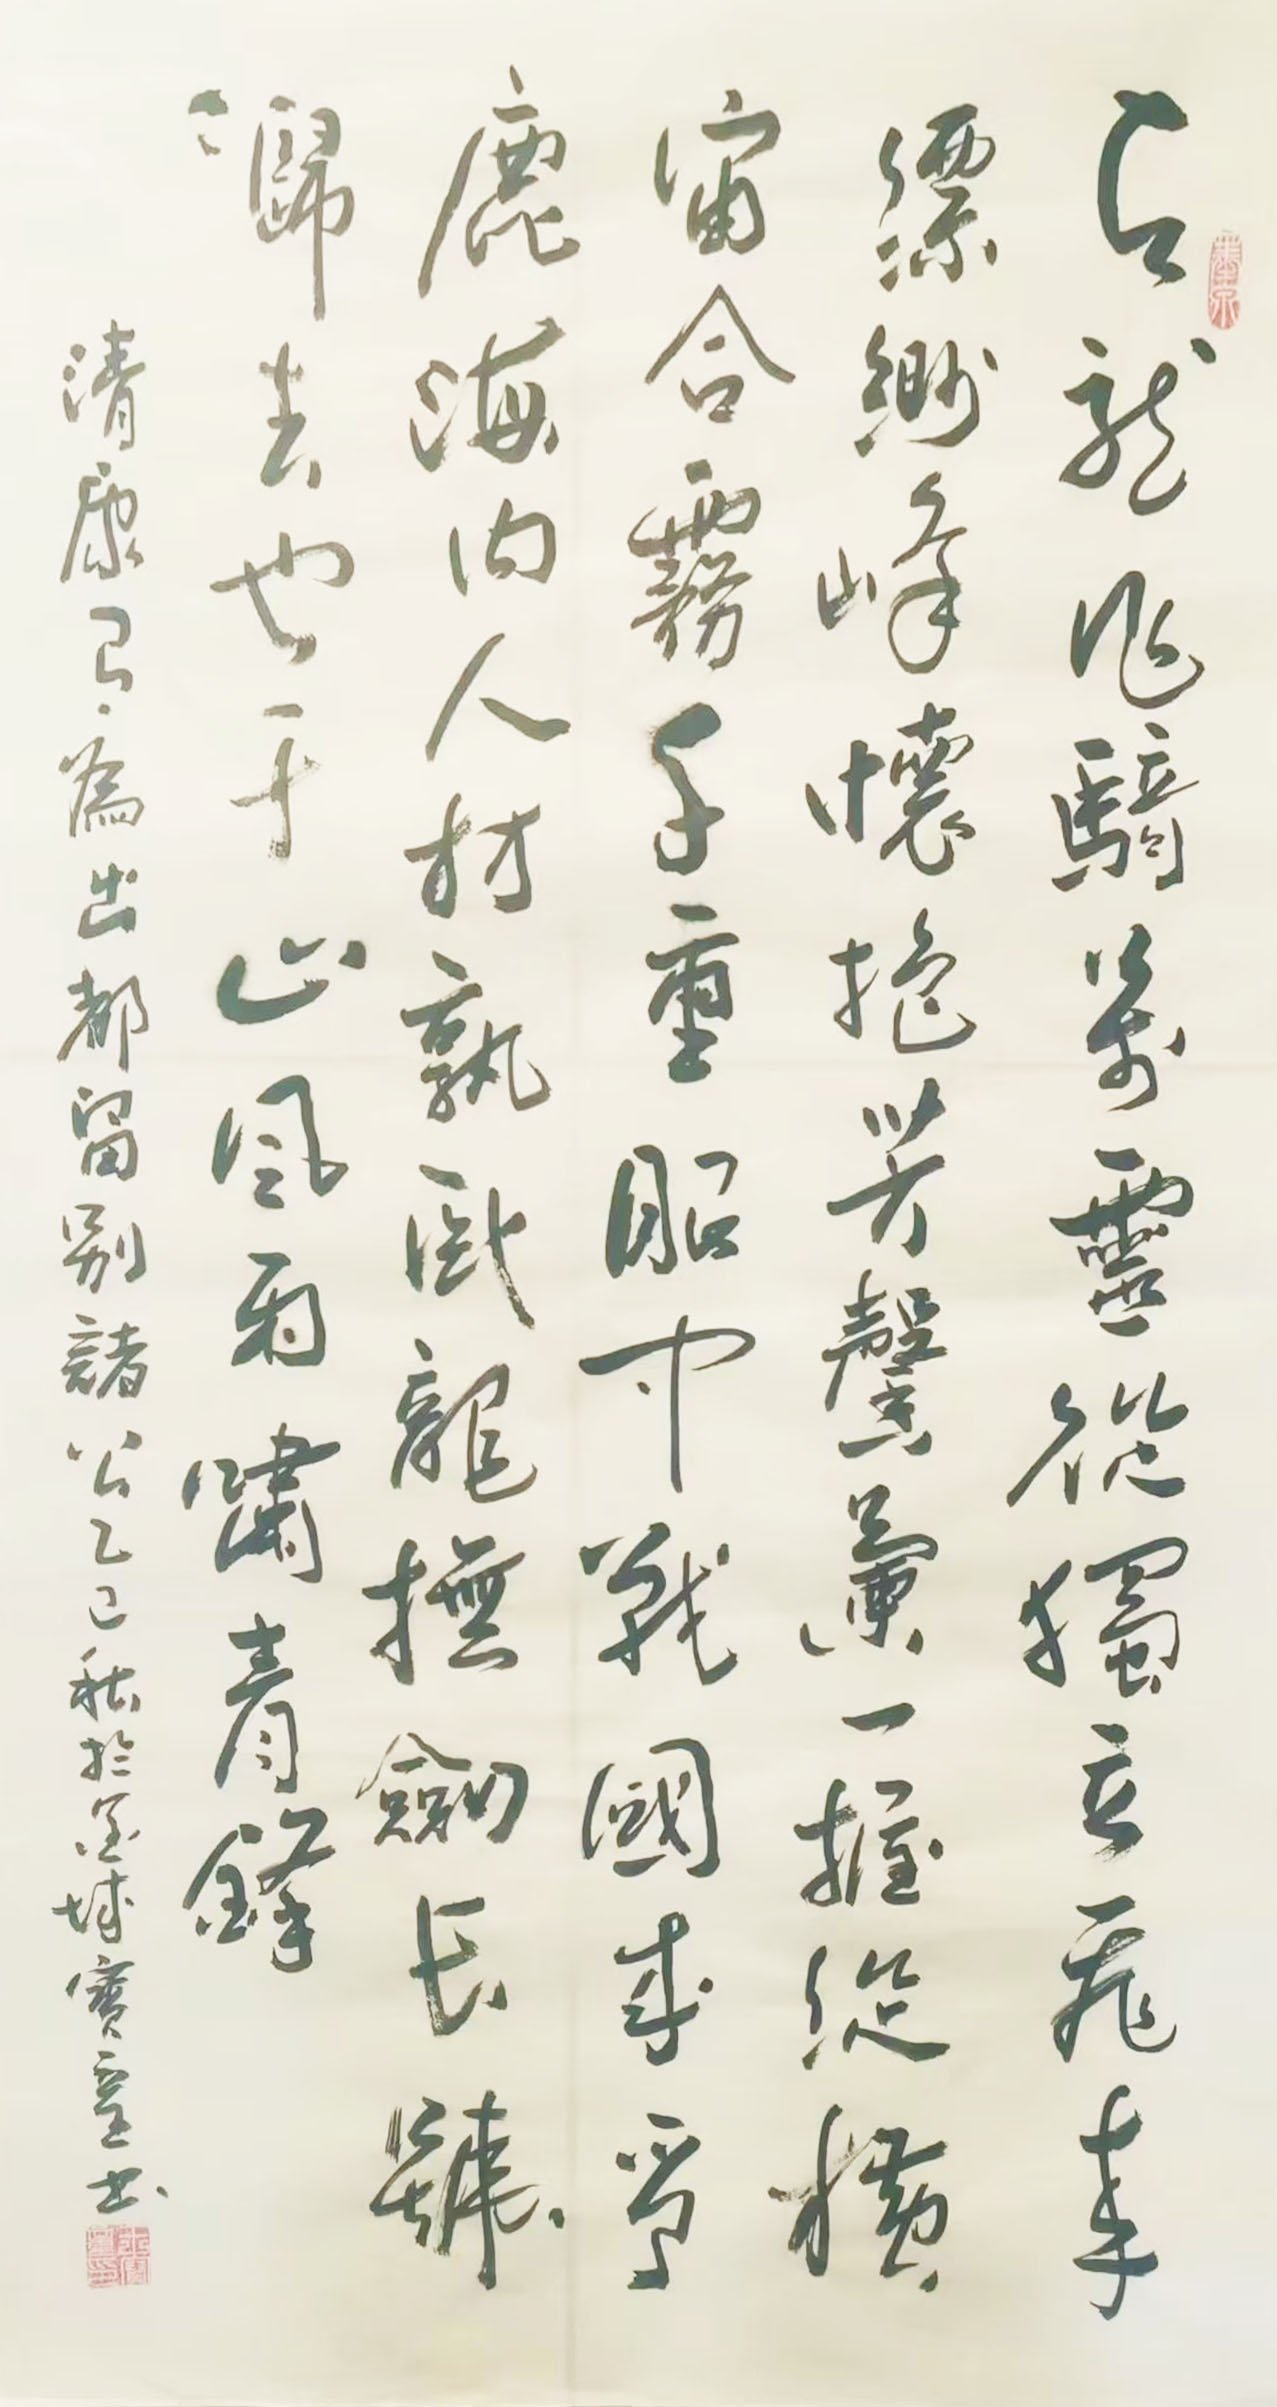 龍作騎萬靈從獨立飛來
縹緲峰懷抱芳馨蘭一握縱橫
宙合霧千重眼中戰國成爭
鹿海內人材孰臥龍撫劍長號
歸去也千山風雨嘯青鋒
清康有為出都留別諸公乙巳秋於金城寶童書